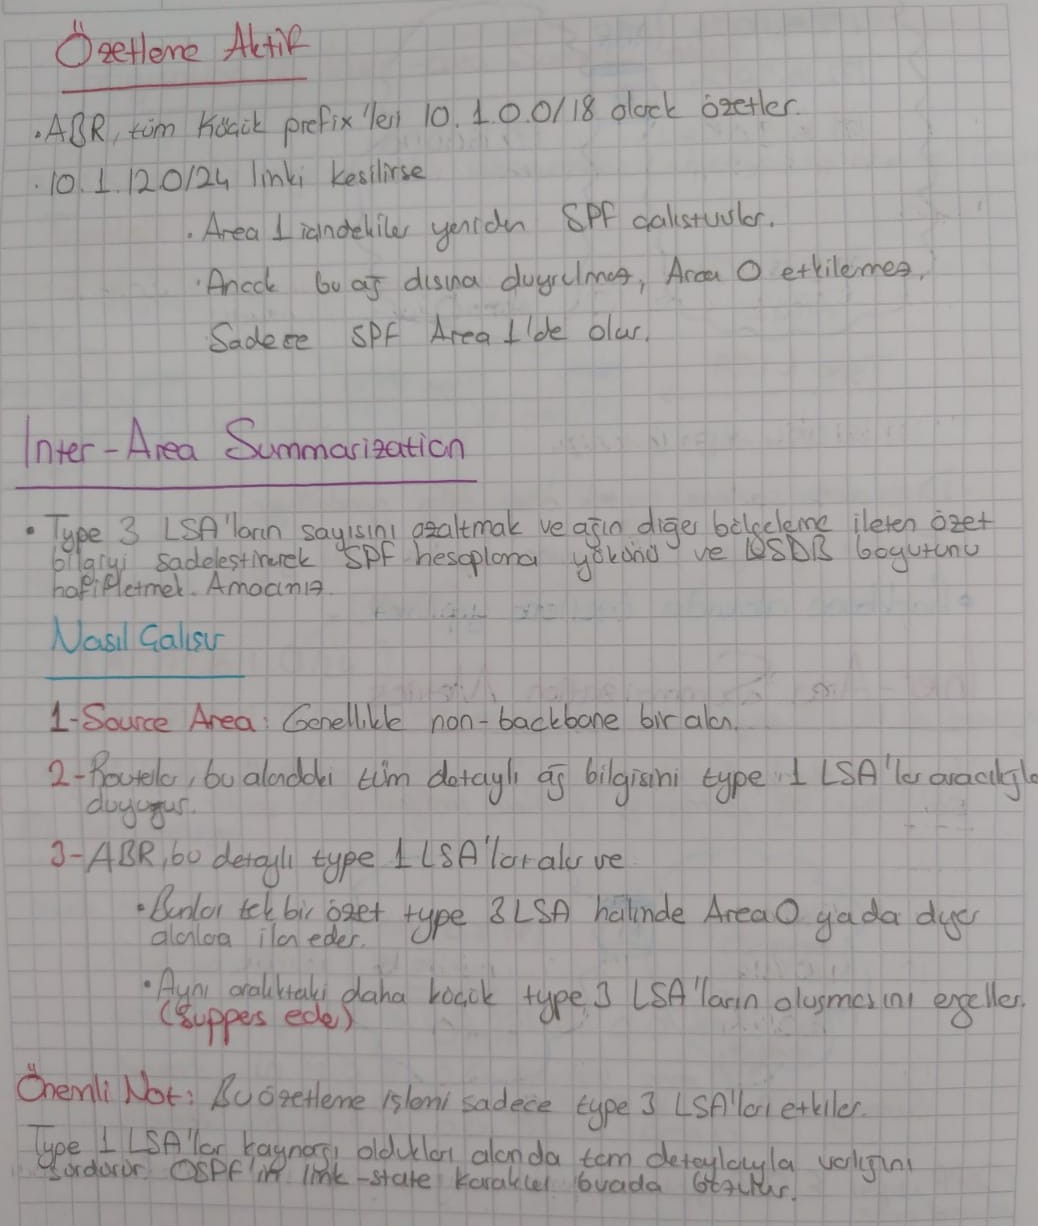 Özetleme Aktif
• ABR, tüm küçük prefix'leri 10.1.0.0/18 olarak özetler.
• 10.1.12.0/24 linki kesilirse
• Area 1 içindekiler yeniden SPF çalıştırırlar.
• Ancak bu ağ dışına duyurulmaz, Area 0 etkilemez,
Sadece SPF Area 1'de olur.
Inter-Area Summarization
• Type 3 LSA'ların sayısını azaltmak ve ağın diğer bölgelerine iletilen özet
bilgiyi sadeleştirerek SPF hesaplama yükünü ve LSDB boyutunu
hafifletmek. Amacımız.
Nasıl Çalışır
1-Source Area: Genellikle non-backbone bir alan.
2-Routerlar, bu alandaki tüm detaylı ağ bilgisini type 1 LSA'lar aracılığıyla
duyurur.
3-ABR, bu detaylı type 1 LSA'ları alır ve
• Bunları tek bir özet type 3 LSA halinde Area 0 yada diğer
alanlara ilan eder.
• Aynı aralıktaki daha küçük type 3 LSA'ların oluşmasını engeller.
(Suppes eder)
Önemli Not: Bu özetleme işlemi sadece type 3 LSA'ları etkiler.
Type 1 LSA'lar kaynağı oldukları alanda tüm detaylarıyla varlığını
sürdürür. OSPF'in link-state karakteri burada